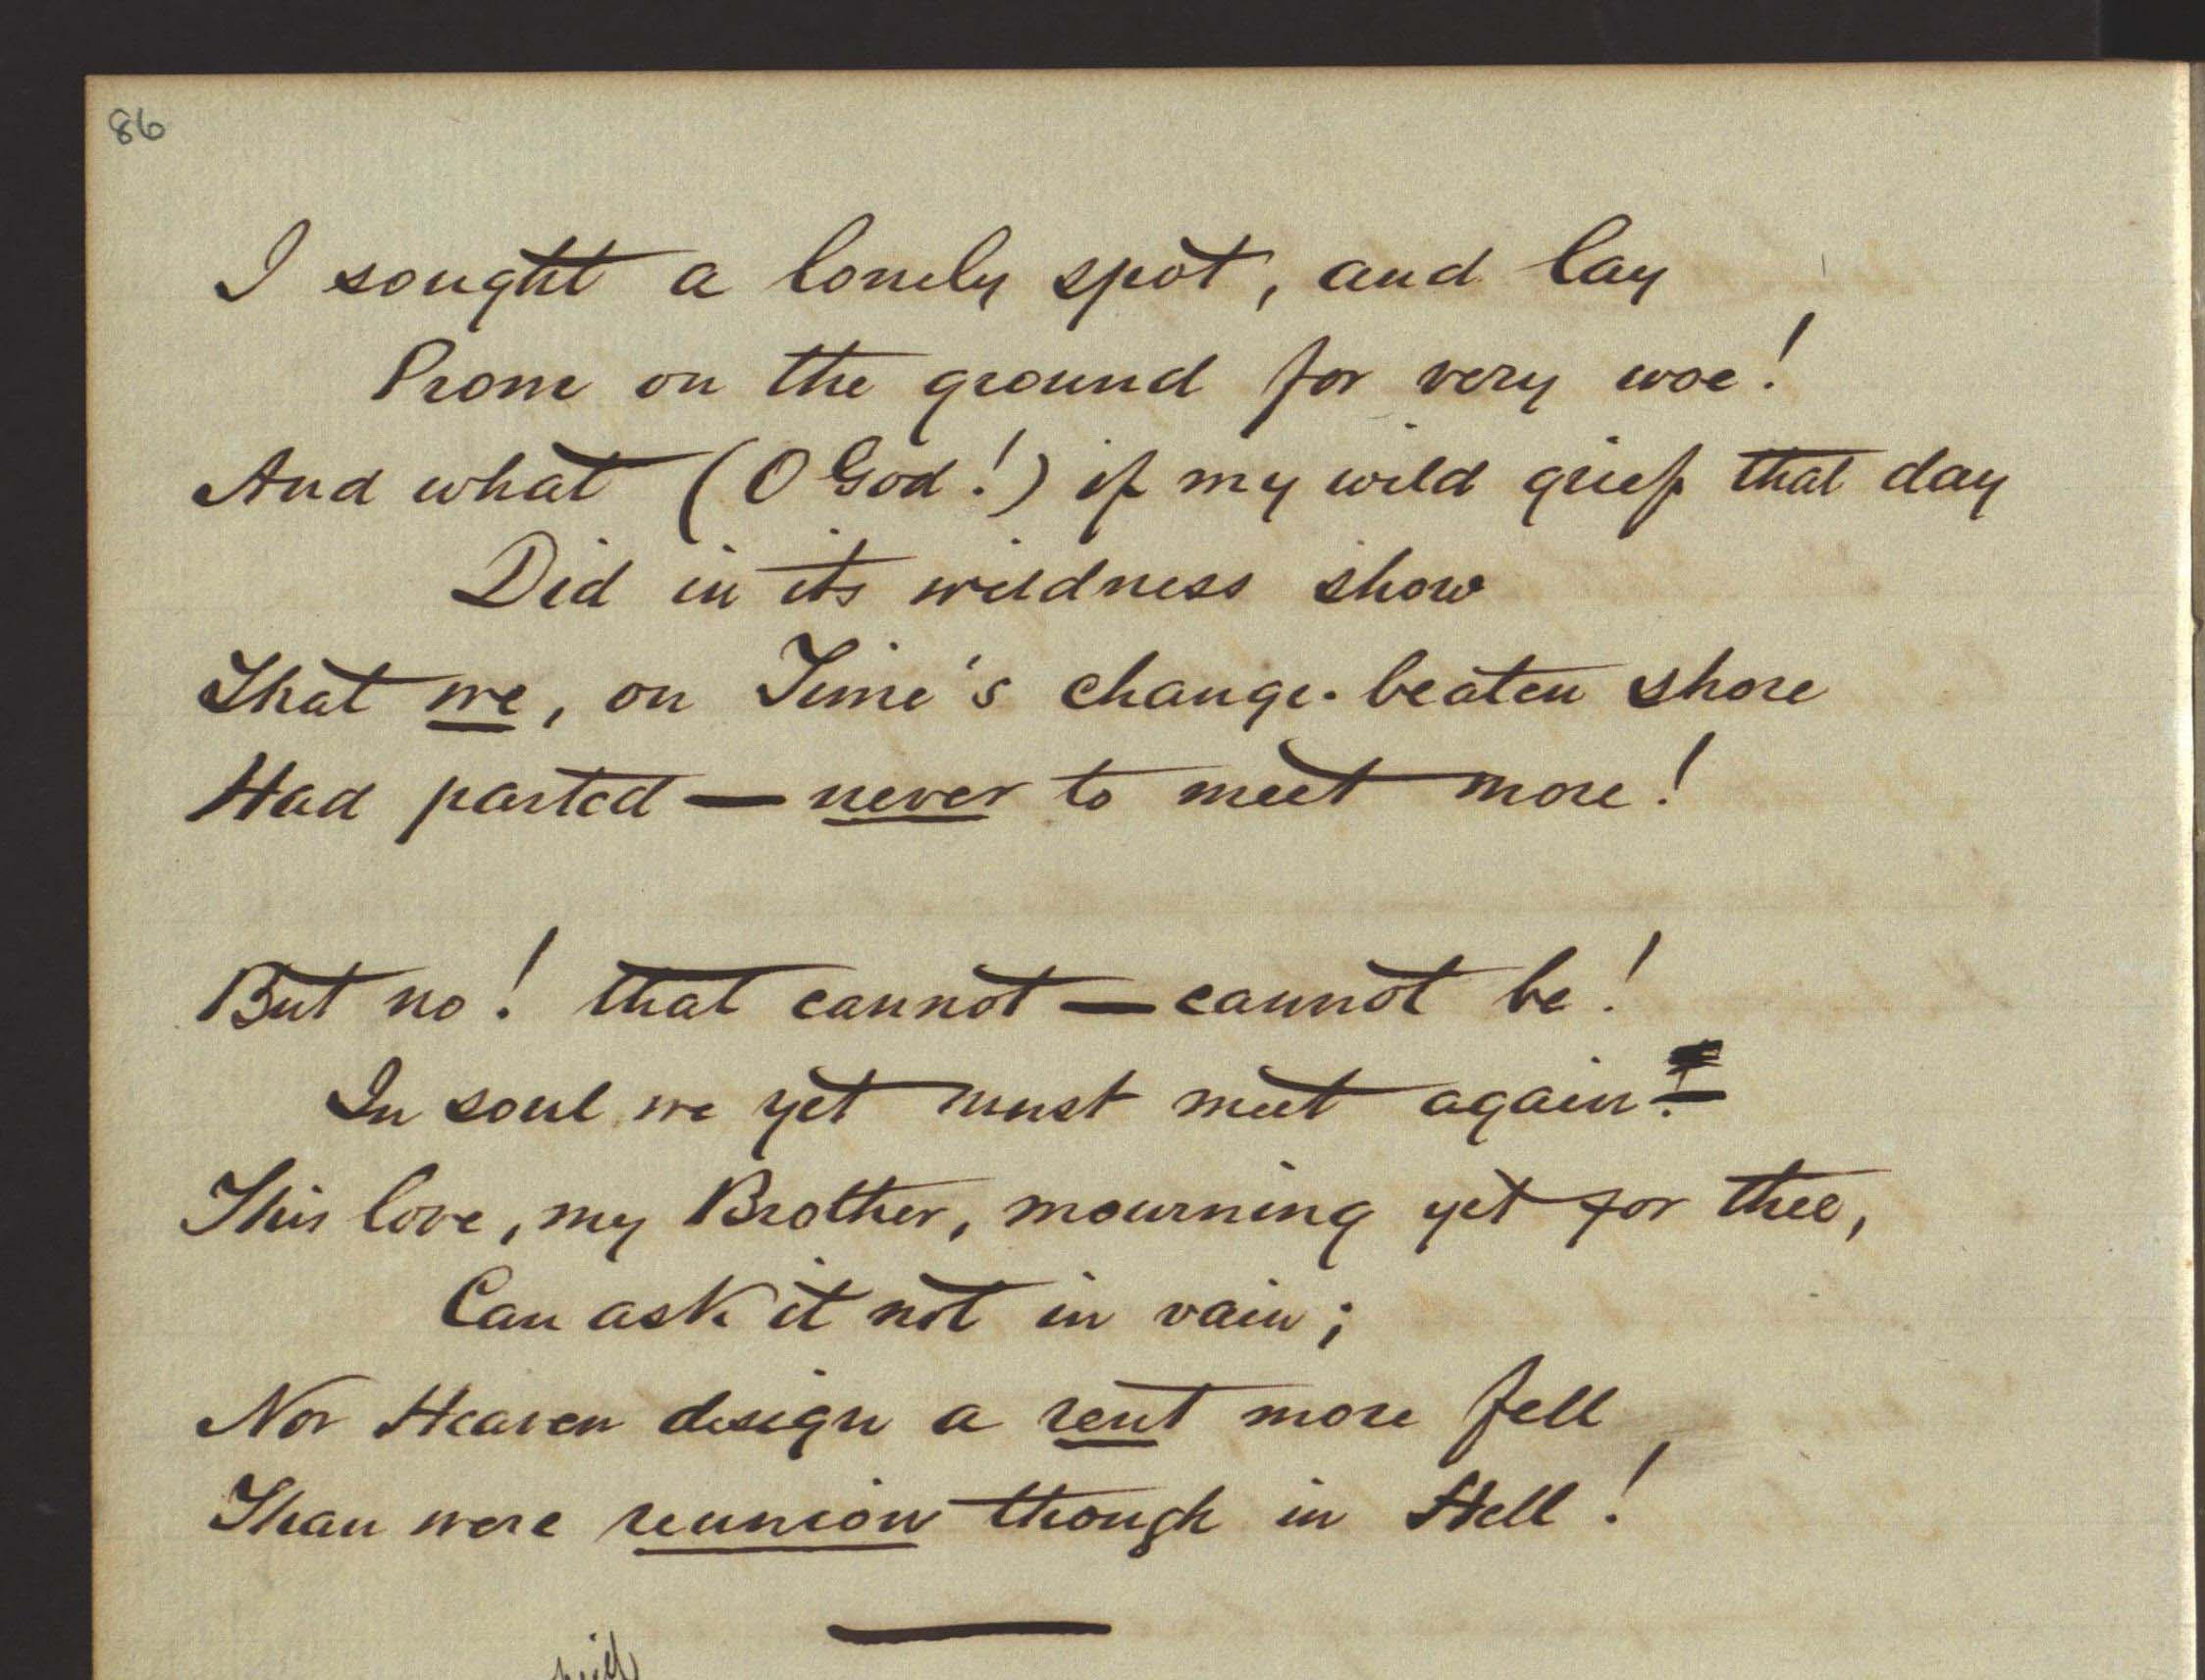 86
I sought a lonely spot, and lay
Prone on the ground for very woe!
And what (O God!) if my wild grief that day
Did in its wildness show
That we, on Time's change-beaten shore
Had parted — never to meet more!
But no! that cannot — cannot be!
In soul we yet must meet again! —
This love, my Brother, mourning yet for thee,
Can ask it not in vain;
Nor Heaven design a rent more fell,
Than were reunion though in Hell!